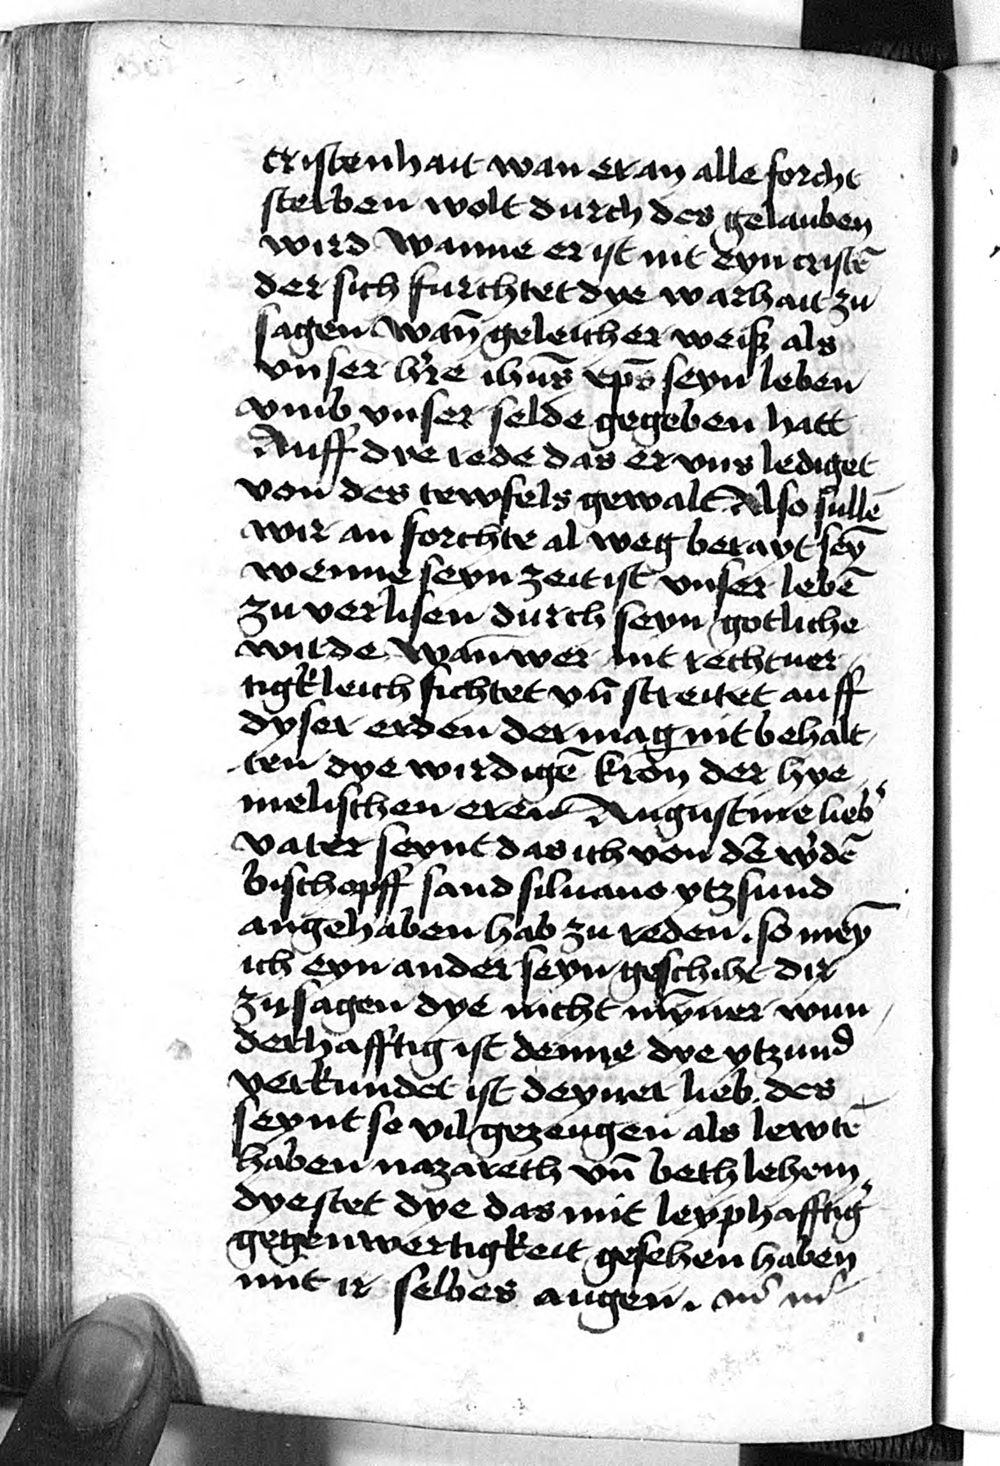 cristenhait wan er an alle forcht
sterben wolt durch des gelauben
wird Wanne er ist nit eyn cristē
der sich furchtet dye warhait zu
sagen Wañ geleicher weiß als
vnser h're ihūs xp̄s seyn leben
vmb vnser selde gegeben hatt
Auff dye rede das er vns lediget
von des tewfels gewalt Also sullē
wir an forchte al weg berayt sey̅
wenne seyn zeit ist vnser lebē
zu verlisen durch seyn gotliche
wirde Wan̄ wer mit rechtuer
tigkleich fichtet vn̄ streitet auff
dyser erden der mag nit behalt
ten dye wirdigē kron der hye
melischen eren Augustine lieb'
vater seynt das ich von dē w'dē
bischopff sand siluano ytzsund
angehaben hab zu reden . so mey̅
ich eyn ander seyn geschiht dir
zu sagen dye nicht my̅ner wun
derhafftig ist denne dye ytzund
verkundet ist deyner lieb . des
seynt se vil gezeugen als lewtē
haben nazareth vn̄ bethlehem
dye stet dye das mit leyphafftig'
gegenwertigkeit gesehen haben
mit ir selbes augen .